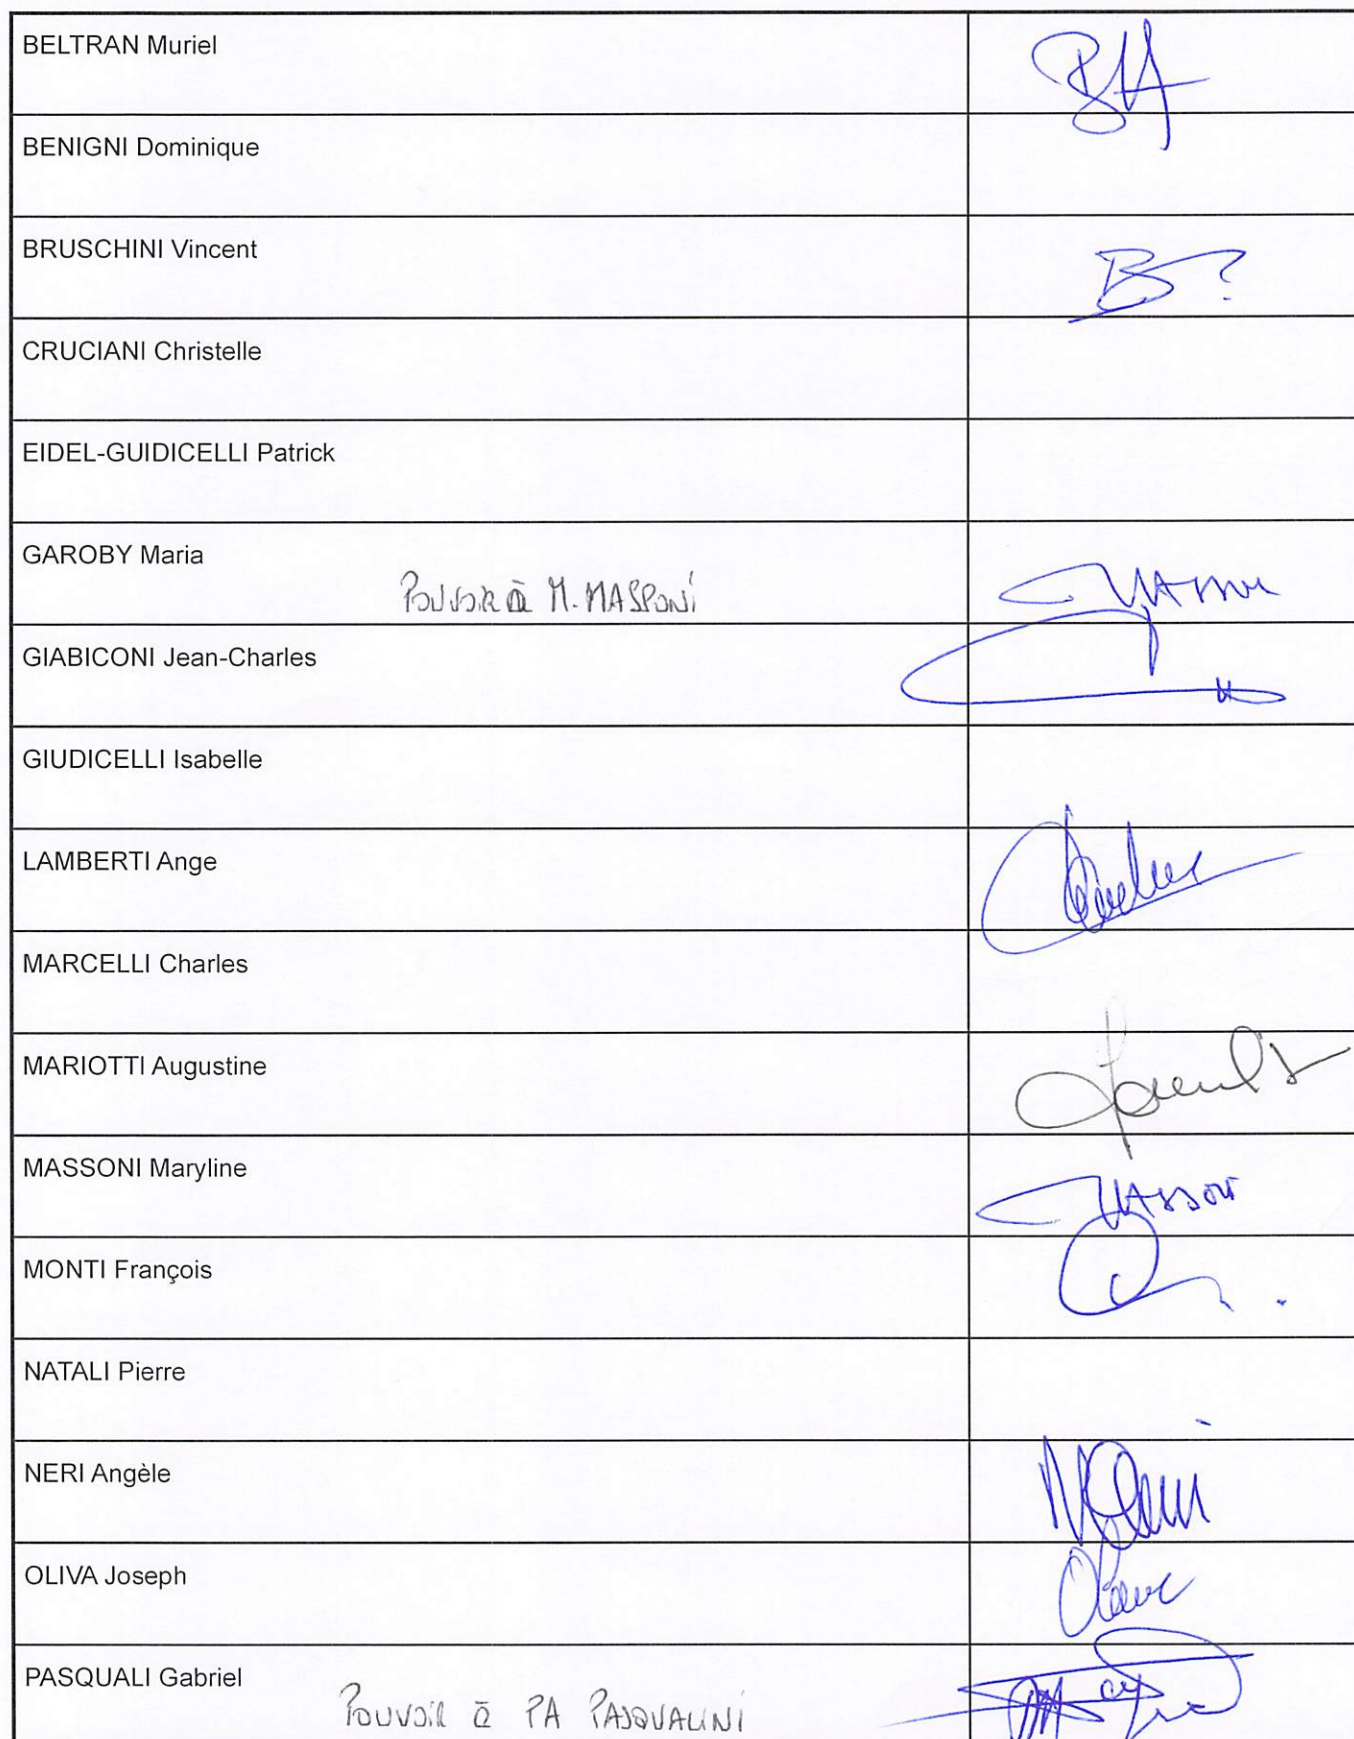 BELTRAN Muriel
BENIGNI Dominique
BRUSCHINI Vincent
CRUCIANI Christelle
EIDEL-GUIDICELLI Patrick
GAROBY Maria
POUVOIR à M. MASSONI
GIABICONI Jean-Charles
GIUDICELLI Isabelle
LAMBERTI Ange
MARCELLI Charles
MARIOTTI Augustine
MASSONI Maryline
MONTI François
NATALI Pierre
NERI Angèle
OLIVA Joseph
PASQUALI Gabriel
POUVOIR à PA PASQUALINI